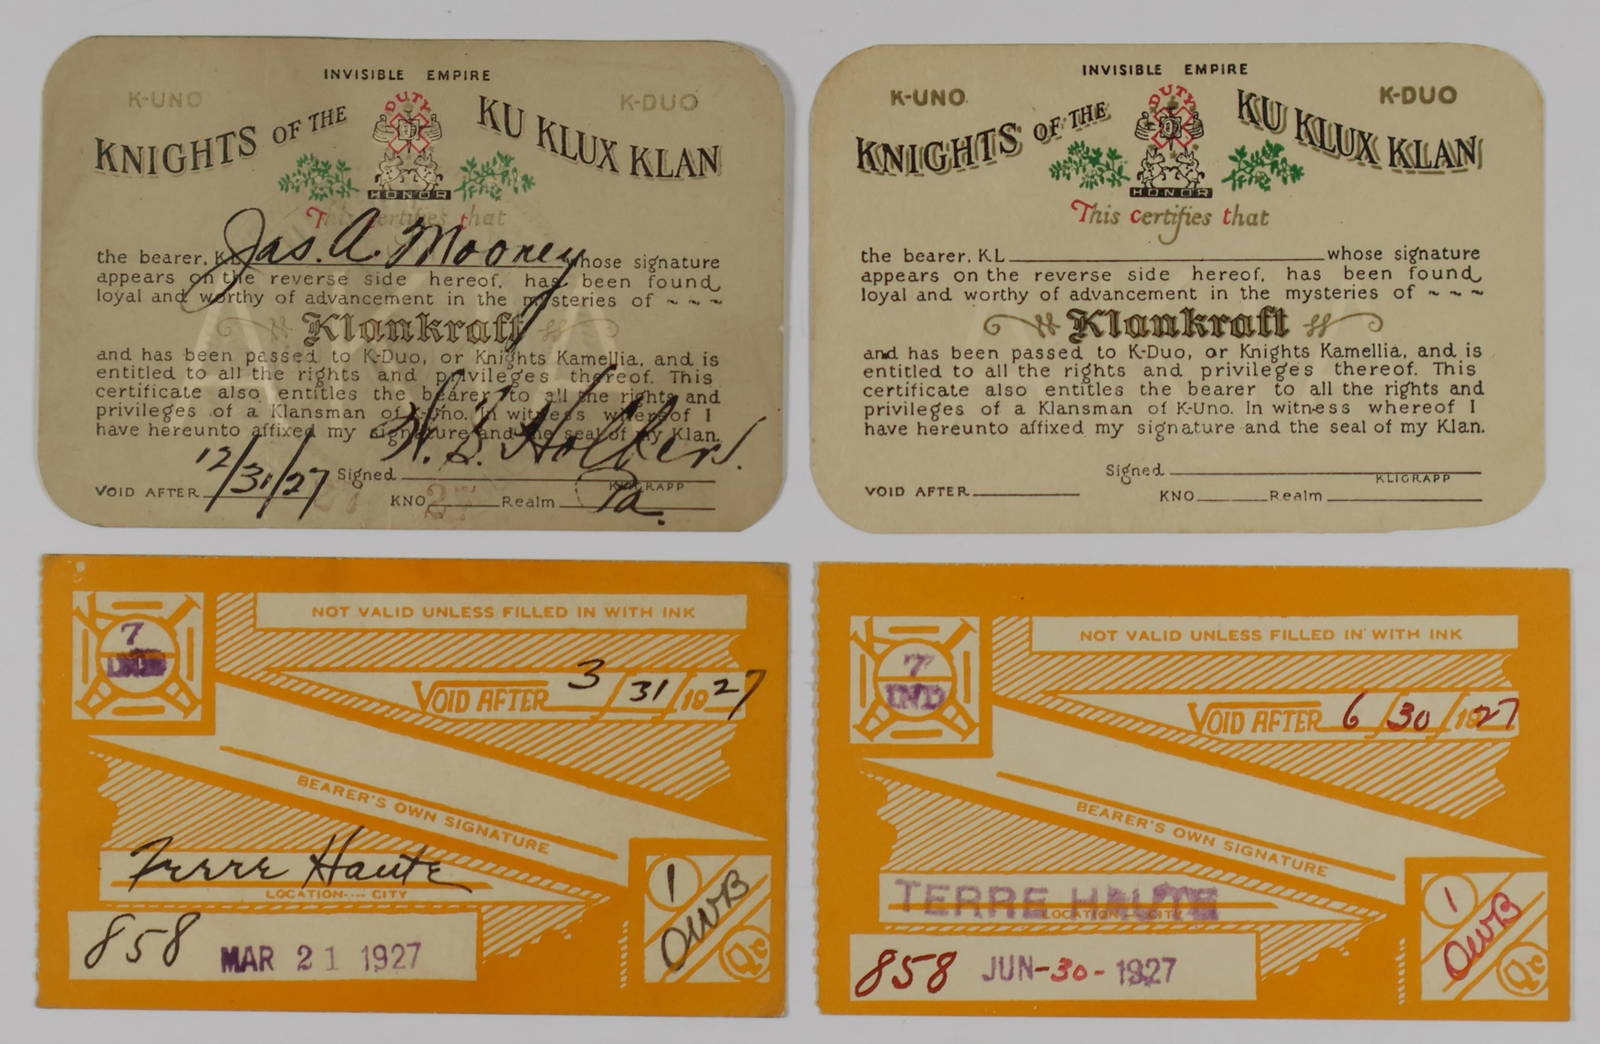 INVISIBLE EMPIRE
K-UNO K-DUO
DUTY
KNIGHTS OF THE KU KLUX KLAN
HONOR
This certifies that
the bearer, KL Jas. A. Mooney whose signature
appears on the reverse side hereof, has been found
loyal and worthy of advancement in the mysteries of ~ ~ ~
Klankraft
and has been passed to K-Duo, or Knights Kamellia, and is
entitled to all the rights and privileges thereof. This
certificate also entitles the bearer to all the rights and
privileges of a Klansman of K-Uno. In witness whereof I
have hereunto affixed my signature and the seal of my Klan.
Signed
KLIGRAPP
VOID AFTER 12/31/27
KNO 27 Realm Pa.
INVISIBLE EMPIRE
K-UNO K-DUO
DUTY
KNIGHTS OF THE KU KLUX KLAN
HONOR
This certifies that
the bearer, KL whose signature
appears on the reverse side hereof, has been found
loyal and worthy of advancement in the mysteries of ~ ~ ~
Klankraft
and has been passed to K-Duo, or Knights Kamellia, and is
entitled to all the rights and privileges thereof. This
certificate also entitles the bearer to all the rights and
privileges of a Klansman of K-Uno. In witness whereof I
have hereunto affixed my signature and the seal of my Klan.
Signed
KLIGRAPP
VOID AFTER KNO Realm
NOT VALID UNLESS FILLED IN WITH INK
7
IND
VOID AFTER 3/31/1927
BEARER'S OWN SIGNATURE
Terre Haute
LOCATION---- CITY
1
OWB
Qr
858 MAR 21 1927
NOT VALID UNLESS FILLED IN WITH INK
7
IND
VOID AFTER 6/30/1927
BEARER'S OWN SIGNATURE
TERRE HAUTE
LOCATION---- CITY
1
OWB
Qr
858 JUN-30-1927